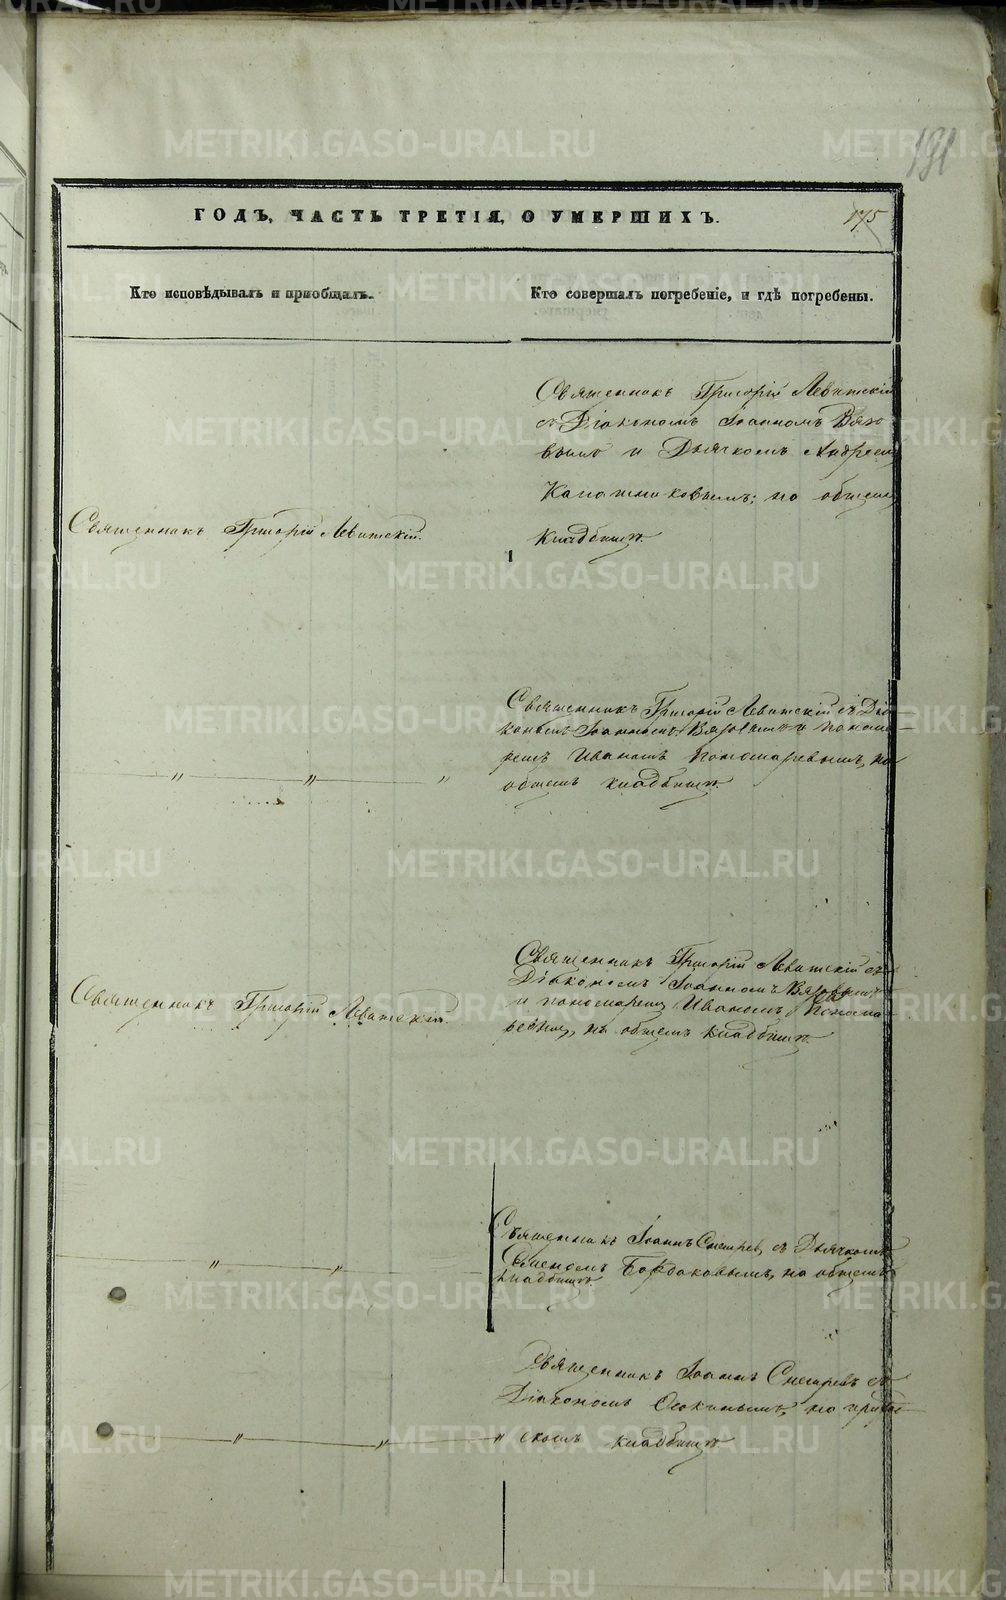 191
ГОДЪ, ЧАСТЬ ТРЕТІЯ, О УМЕРШИХЪ.
175
Кто исповѣдывалъ и пріобщалъ.
Кто совершалъ погребеніе, и гдѣ погребены.
Священникъ Григорій Левитскій
съ Діакономъ Іоанномъ Вязо
вымъ и Дьячкомъ Андреемъ
на общемъ
кладбищѣ.
Священникъ Григорій Левитскій.
Священникъ Григорій Левитскій съ Діа
кономъ Іоанномъ Вязовымъ и понома-
ремъ Иваномъ Пономаревымъ, на
общемъ кладбищѣ.
„ „ „
Священникъ Григорій Левитскій съ
Діакономъ Іоанномъ Вязовымъ
и пономаремъ Иваномъ Понома-
ревымъ, на общемъ кладбищѣ.
Священникъ Григорій Левитскій.
Священникъ Іоаннъ съ Дьячкомъ
Семеномъ на общемъ
кладбищѣ
„ „
Священникъ Іоаннъ съ
Діакономъ на
кладбищѣ
„ „ „
METRIKI.GASO-URAL.RU